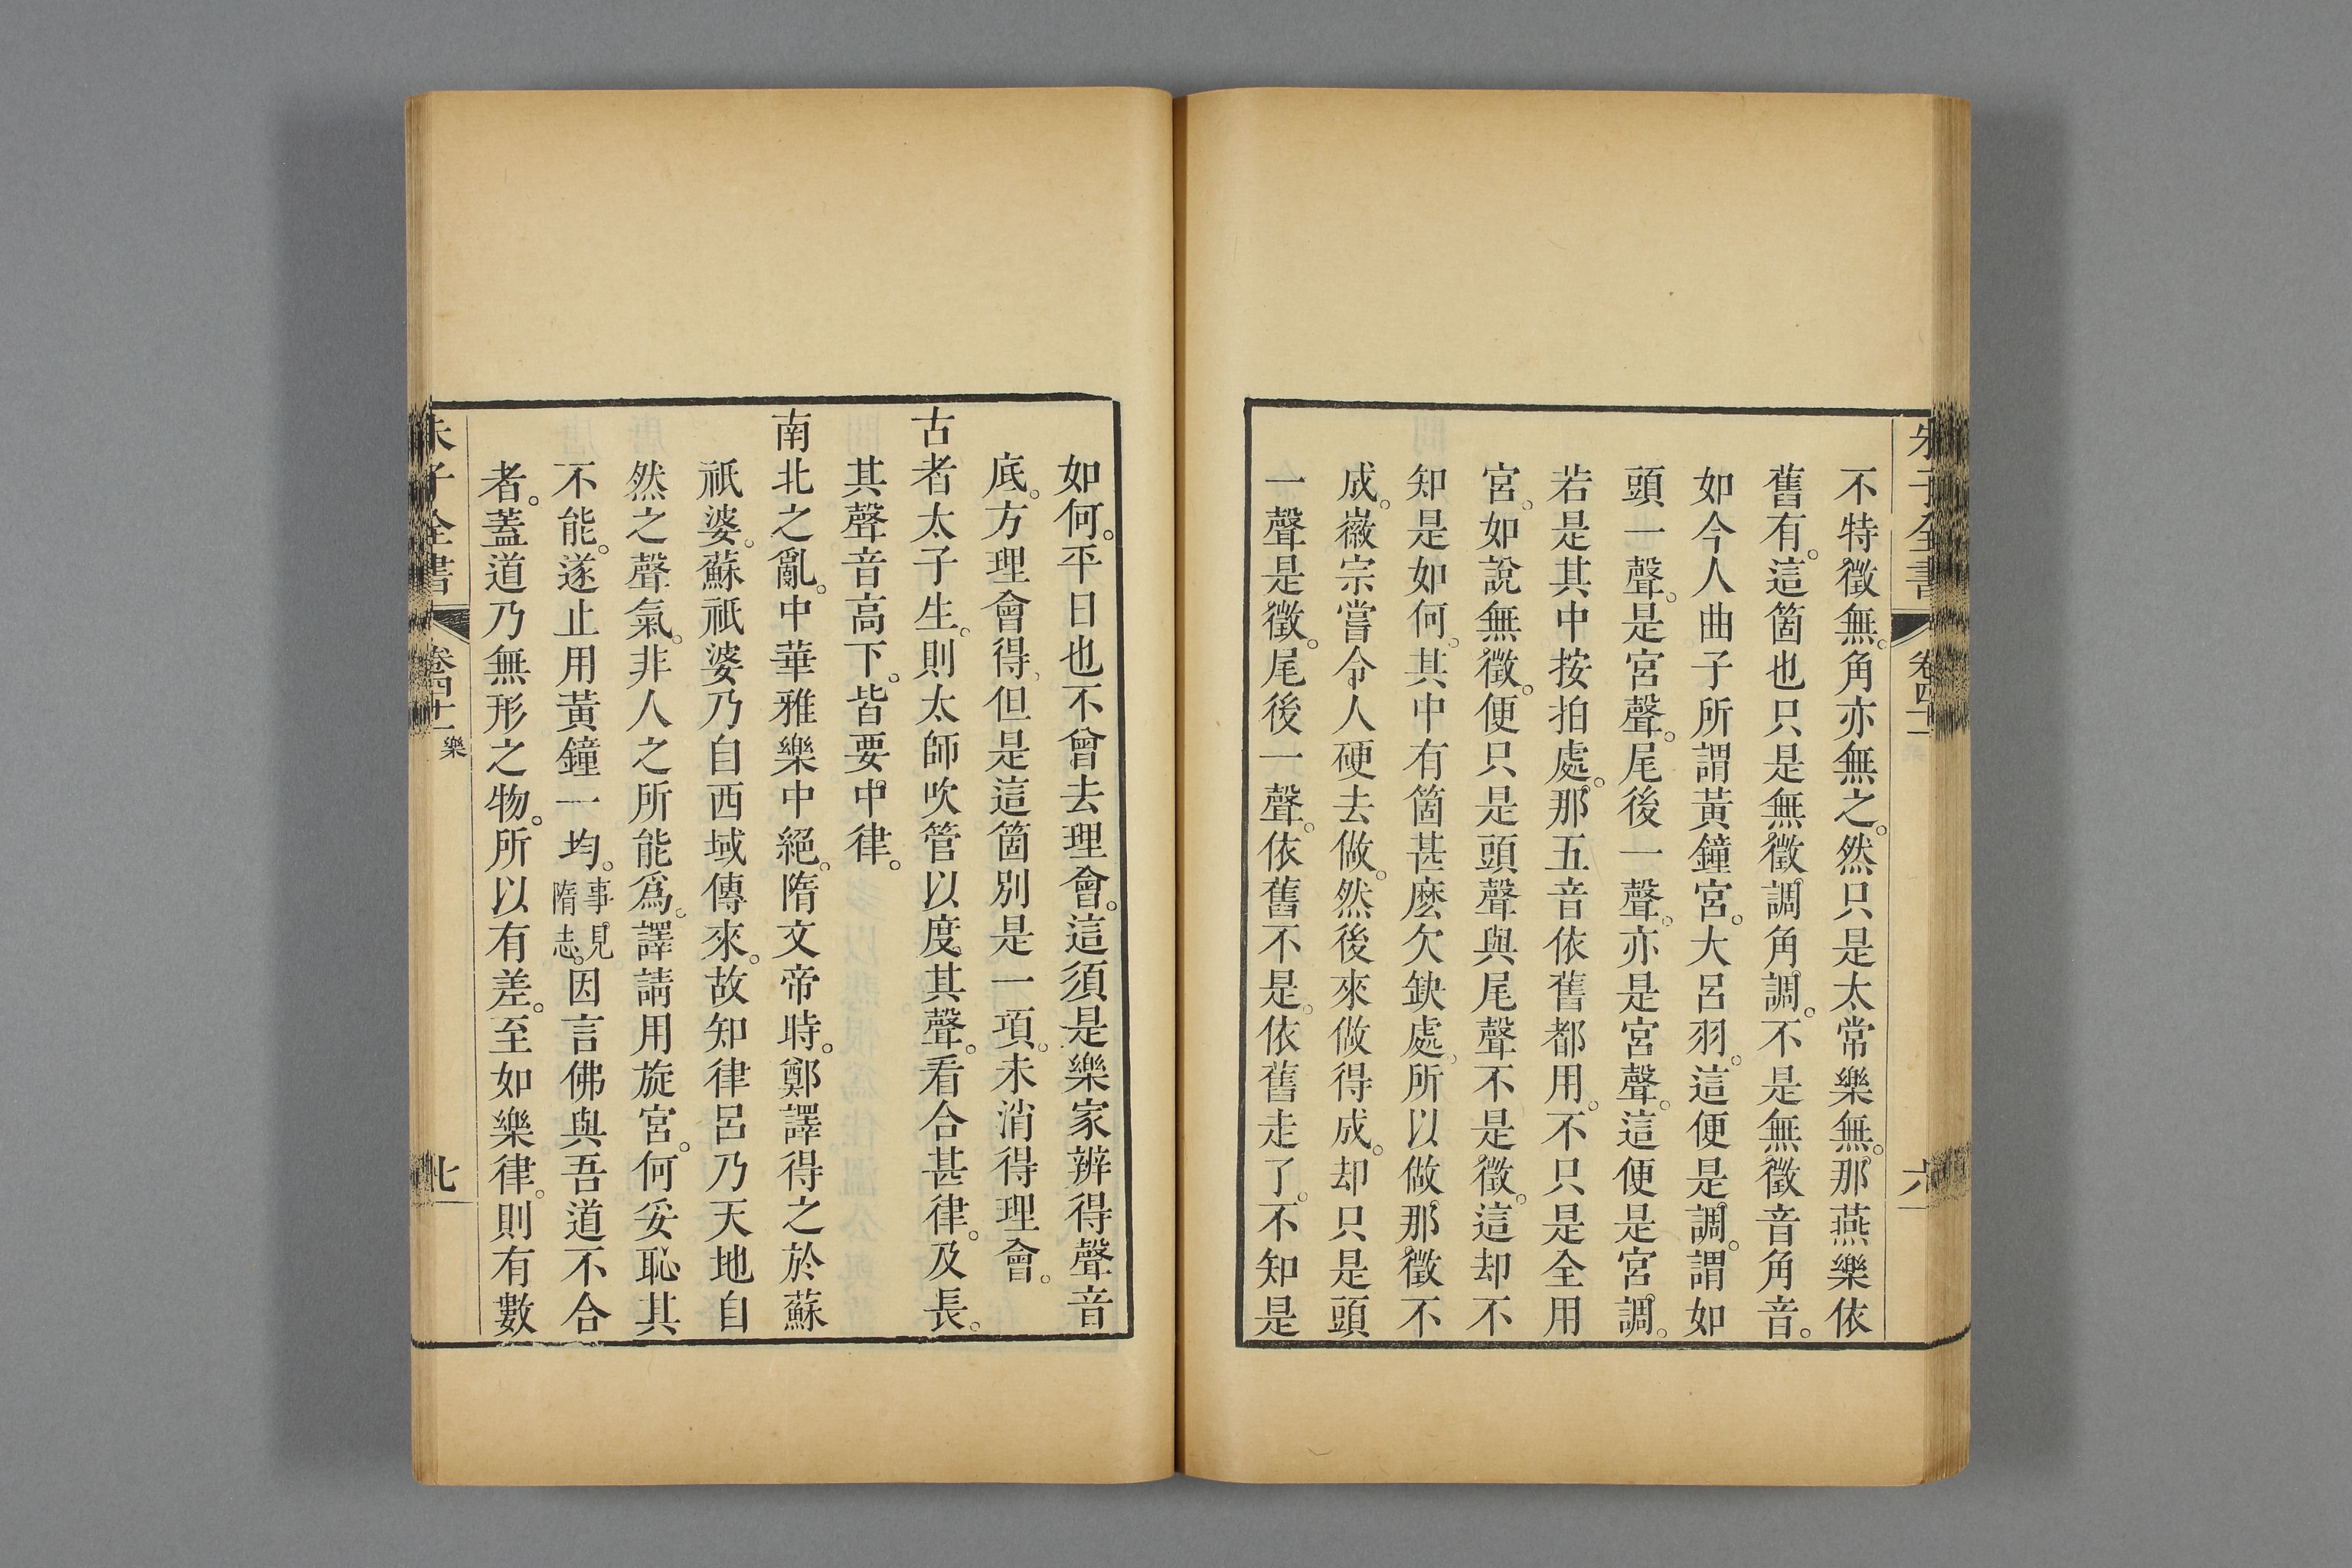 不特徵無。角亦無之。然只是太常樂無。那燕樂依
舊有。這箇也只是無徵調角調。不是無徵音角音。
如今人曲子所謂黃鐘宮。大呂羽。這便是調。謂如
頭一聲。是宮聲。尾後一聲。亦是宮聲。這便是宮調。
若是其中按拍處。那五音依舊都用。不只是全用
宮。如說無徵。便只是頭聲與尾聲不是徵。這却不
知是如何。其中有箇甚麽欠缺處。所以做那徵不
成。徽宗嘗令人硬去做。然後來做得成。却只是頭
一聲是徵。尾後一聲。依舊不是。依舊走了。不知是
如何。平日也不曾去理會。這須是樂家辨得聲音
底。方理會得。但是這箇別是一項。未消得理會。
古者太子生。則太師吹管以度其聲。看合甚律。及長。
其聲音高下。皆要中律。
南北之亂。中華雅樂中絕。隋文帝時。鄭譯得之於蘇
祇婆。蘇祇婆乃自西域傳來。故知律呂乃天地自
然之聲氣。非人之所能爲。譯請用旋宮。何妥恥其
不能。遂止用黃鐘一均。事見隋志。因言佛與吾道不合
者。蓋道乃無形之物。所以有差。至如樂律。則有數
朱子全書
卷四十一 樂